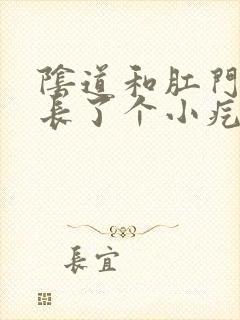 陰道和肛門
長了个小疙
長宜